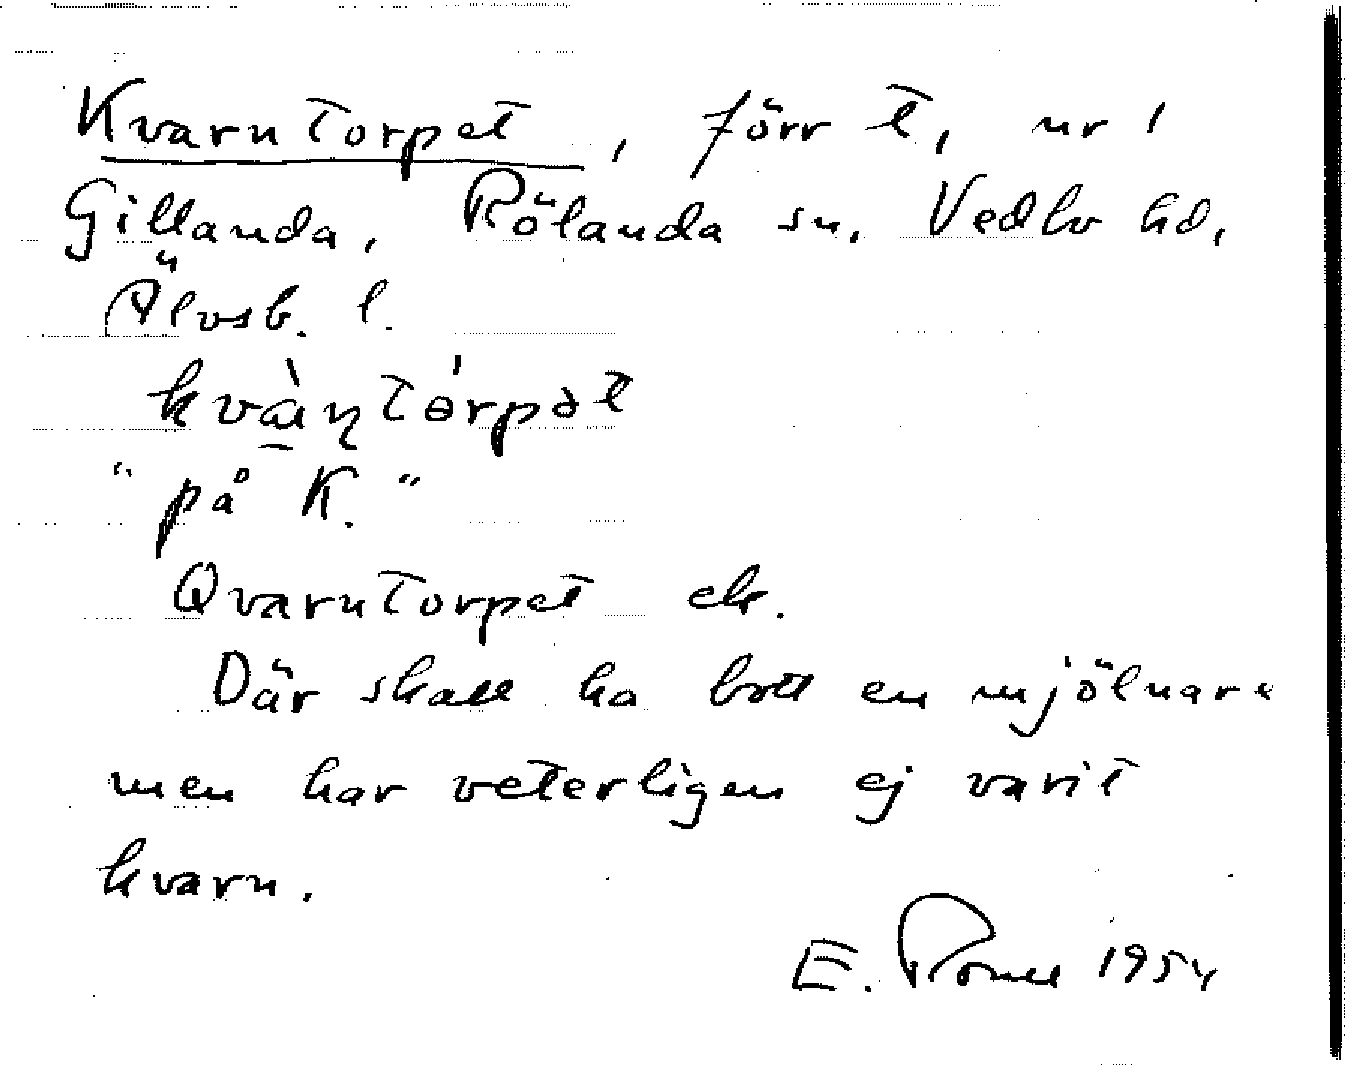 Kvarntorpet, förr t, nr 1
Gillanda, Rölanda sn. Vedbo hd,
Älvsb. l.
kvàṇtórpət
"på K."
Qvarntorpet ek.
Där skall ha bott en mjölnare
men har veterligen ej varit
kvarn.
E. 1954